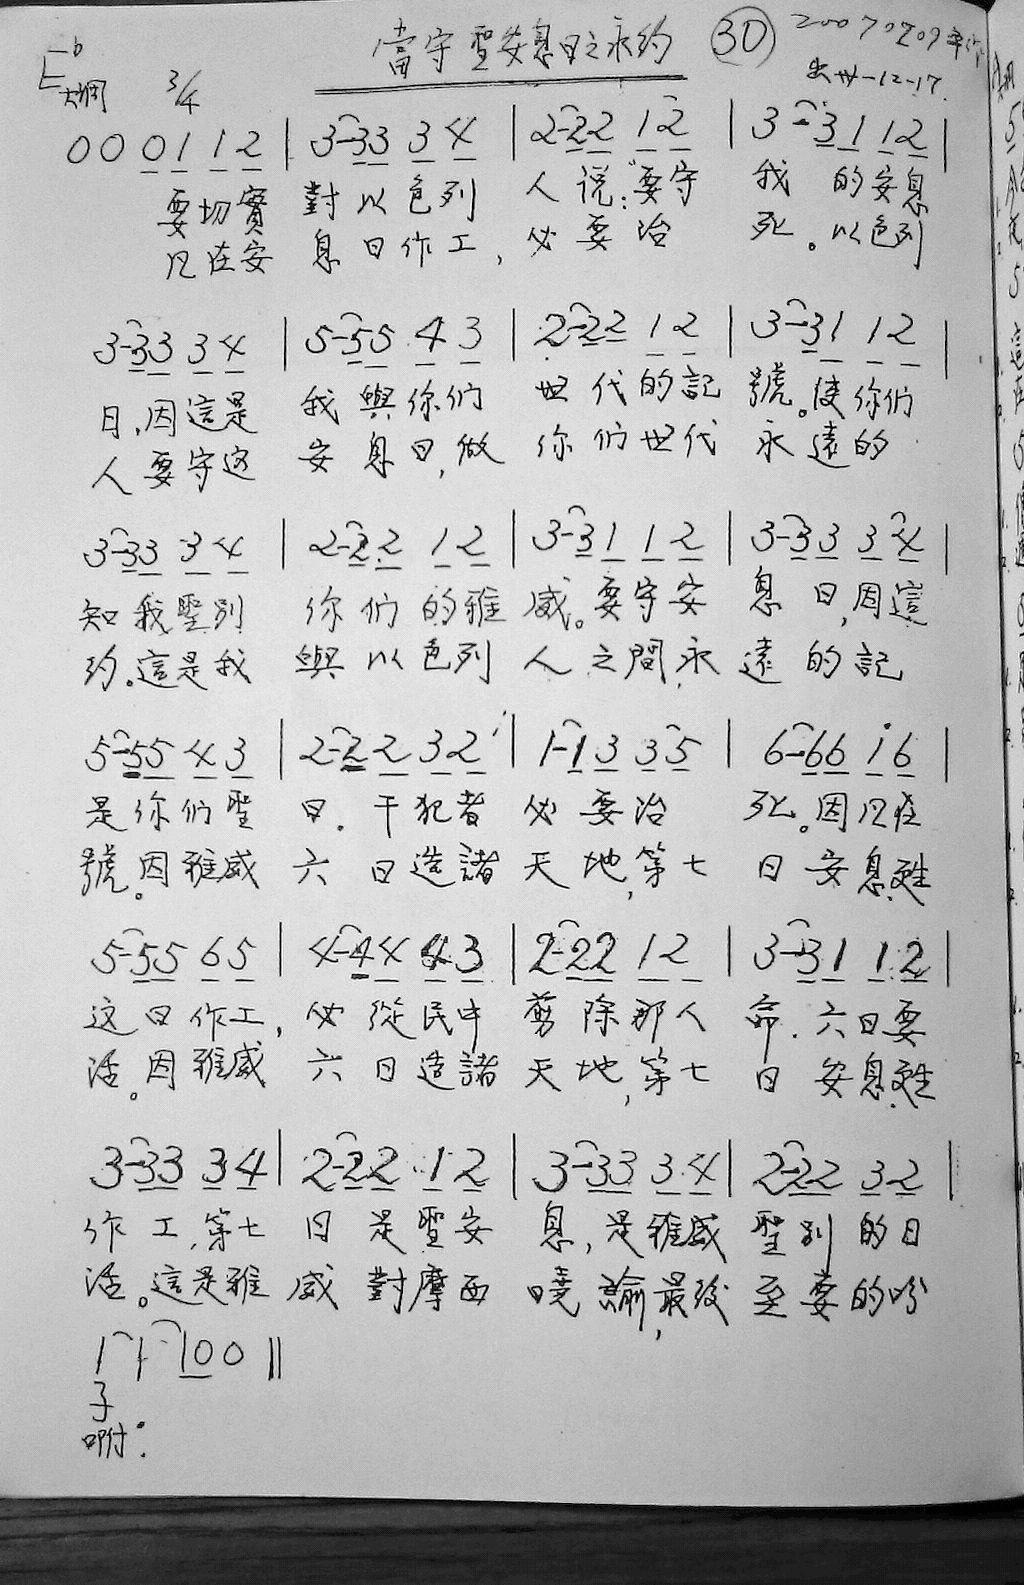 當守聖安息日之永約 30 20070209
E b 大調 3/4 出卅一12-17
0 0 0 1 1 2 | 3-33 3 4 | 2-22 1 2 | 3-31 1 2 |
要切實 對以色列 人说:“要守 我的安息
凡在安 息日作工, 必要治 死。以色列
3-33 3 4 | 5-55 4 3 | 2-22 1 2 | 3-31 1 2 |
日,因這是 我與你们 世代的記 號。使你们
人要守这 安息日,做 你们世代 永遠的
3-33 3 4 | 2-22 1 2 | 3-31 1 2 | 3-33 3 4 |
知我聖别 你们的雅威。要守安 息日,因這
约。這是我 與以色列 人之間永遠的記
5-55 4 3 | 2-22 3 2 | 1-13 3 5 | 6-66 i 6 |
是你们聖 日.干犯者 必要治 死。因凡在
號。因雅威 六日造諸 天地,第七 日安息,甦
5-55 6 5 | 4-44 4 3 | 2-22 1 2 | 3-31 1 2 |
这日作工, 必從民中 剪除那人 命.六日要
活。因雅威 六日造諸 天地,第七 日安息,甦
3-33 3 4 | 2-22 1 2 | 3-33 3 4 | 2-22 3 2 |
作工,第七 日是聖安 息,是雅威 聖别的日
活。這是雅 威對摩西 曉諭,最後 至要的吩
1-1-1 0 0 ||
子
咐.